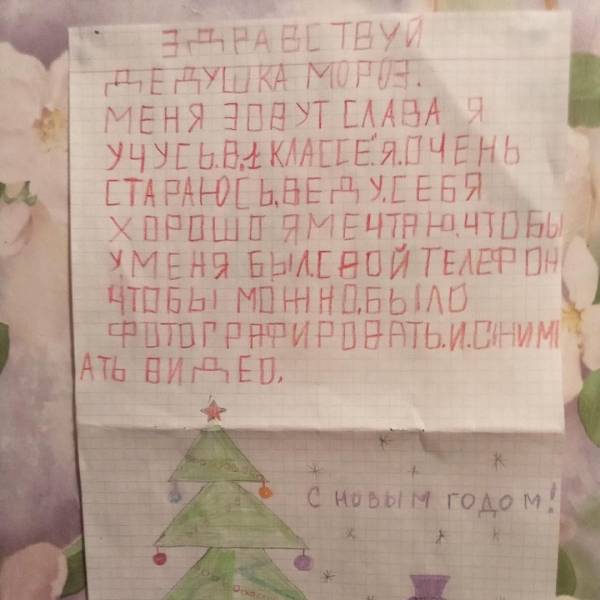 ЗДРАВСТВУЙ
ДЕДУШКА МОРОЗ.
МЕНЯ ЗОВУТ СЛАВА Я
УЧУСЬ.В.1 КЛАССЕ.Я.ОЧЕНЬ
СТАРАЮСЬ.ВЕДУ.СЕБЯ
ХОРОШО Я МЕЧТАЮ.ЧТОБЫ
У МЕНЯ БЫЛ.СВОЙ ТЕЛЕФОН
ЧТОБЫ МОЖНО.БЫЛО
ФОТОГРАФИРОВАТЬ.И.СНИМ
АТЬ ВИДЕО.
С НОВЫМ ГОДОМ!